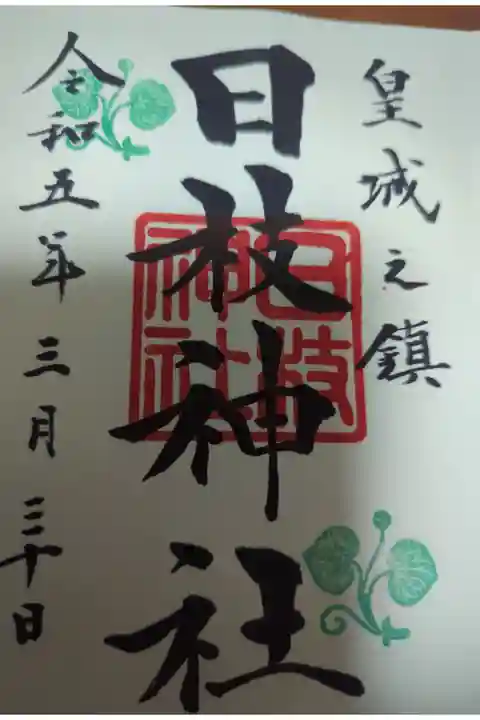 皇城之鎮
日枝神社
日枝
神社
令和五年三月三十日